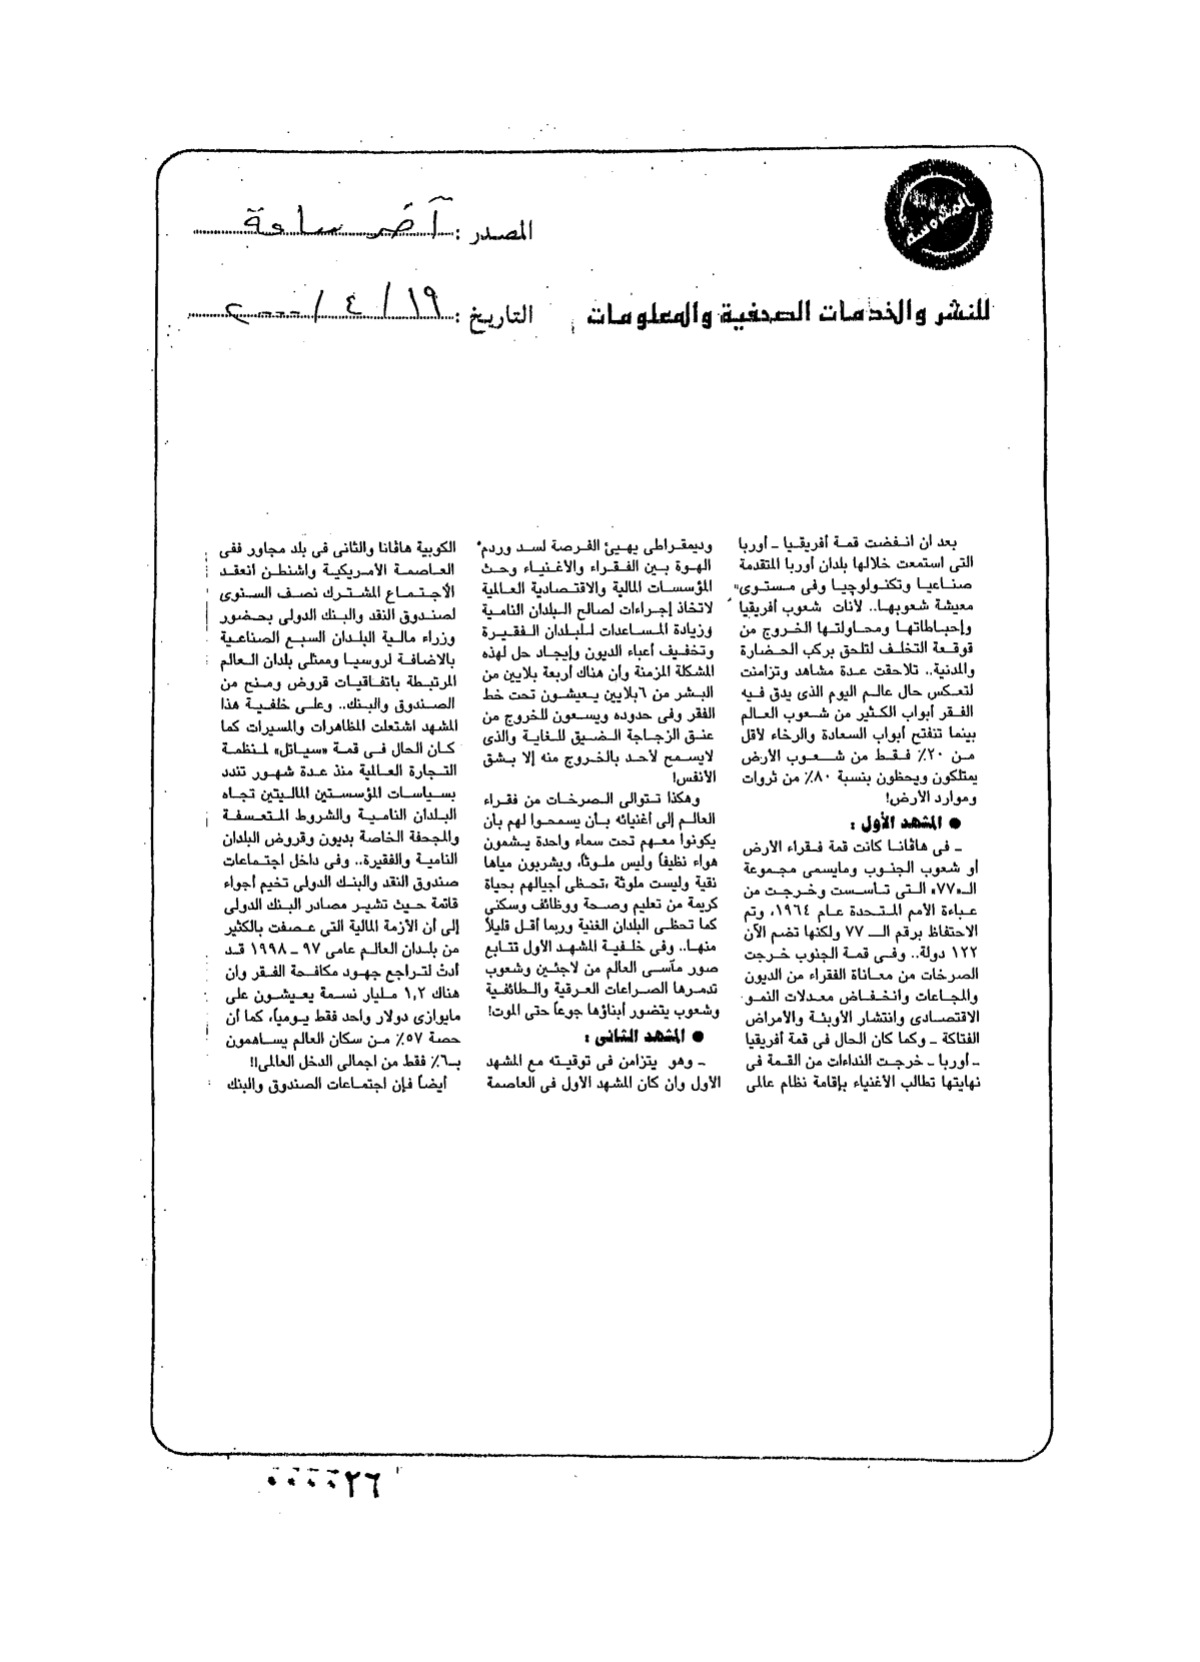 المحروسة
المصدر : آخر ساعة
للنشر والخدمات الصحفية والمعلومات
التاريخ : ١٩ / ٤ / ٢٠٠٠
بعد أن انفضت قمة أفريقيا ـ أوربا
التى استمعت خلالها بلدان أوربا المتقدمة
صناعيا وتكنولوچيا وفى مستوى
معيشة شعوبها.. لأنات شعوب أفريقيا
وإحباطاتها ومحاولتها الخروج من
قوقعة التخلف لتلحق بركب الحضارة
والمدنية.. تلاحقت عدة مشاهد وتزامنت
لتعكس حال عالم اليوم الذى يدق فيه
الفقر أبواب الكثير من شعوب العالم
بينما تنفتح أبواب السعادة والرخاء لأقل
من ٢٠٪ فقط من شعوب الأرض
يمتلكون ويحظون بنسبة ٨٠٪ من ثروات
وموارد الأرض!
● المشهد الأول :
ـ فى هاڤانا كانت قمة فقراء الأرض
أو شعوب الجنوب ومايسمى مجموعة
الـ«٧٧» التى تأسست وخرجت من
عباءة الأمم المتحدة عام ١٩٦٤، وتم
الاحتفاظ برقم الـ ٧٧ ولكنها تضم الآن
١٢٢ دولة.. وفى قمة الجنوب خرجت
الصرخات من معاناة الفقراء من الديون
والمجاعات وانخفاض معدلات النمو
الاقتصادى وانتشار الأوبئة والأمراض
الفتاكة ـ وكما كان الحال فى قمة أفريقيا
ـ أوربا ـ خرجت النداءات من القمة فى
نهايتها تطالب الأغنياء بإقامة نظام عالمى
وديمقراطى يهيئ الفرصة لسد وردم
الهوة بين الفقراء والأغنياء وحث
المؤسسات المالية والاقتصادية العالمية
لاتخاذ إجراءات لصالح البلدان النامية
وزيادة المساعدات للبلدان الفقيرة
وتخفيف أعباء الديون وإيجاد حل لهذه
المشكلة المزمنة وأن هناك أربعة بلايين من
البشر من ٦بلايين يعيشون تحت خط
الفقر وفى حدوده ويسعون للخروج من
عنق الزجاجة الضيق للغاية والذى
لايسمح لأحد بالخروج منه إلا بشق
الأنفس!
وهكذا تتوالى الصرخات من فقراء
العالم إلى أغنيائه بأن يسمحوا لهم بأن
يكونوا معهم تحت سماء واحدة يشمون
هواء نظيفاً وليس ملوثاً، ويشربون مياها
نقية وليست ملوثة ،تحظى أجيالهم بحياة
كريمة من تعليم وصحة ووظائف وسكنى
كما تحظى البلدان الغنية وربما أقل قليلاً
منها.. وفى خلفية المشهد الأول تتابع
صور مآسى العالم من لاجئين وشعوب
تدمرها الصراعات العرقية والطائفية
وشعوب يتضور أبناؤها جوعاً حتى الموت!
● المشهد الثانى :
ـ وهو يتزامن فى توقيته مع المشهد
الأول وان كان المشهد الأول فى العاصمة
الكوبية هاڤانا والثانى فى بلد مجاور ففى
العاصمة الأمريكية واشنطن انعقد
الأجتماع المشترك نصف السنوى
لصندوق النقد والبنك الدولى بحضور
وزراء مالية البلدان السبع الصناعية
بالاضافة لروسيا وممثلى بلدان العالم
المرتبطة باتفاقيات قروض ومنح من
الصندوق والبنك.. وعلى خلفية هذا
المشهد اشتعلت المظاهرات والمسيرات كما
كان الحال فى قمة «سياتل» لمنظمة
التجارة العالمية منذ عدة شهور تندد
بسياسات المؤسستين الماليتين تجاه
البلدان النامية والشروط المتعسفة
والمجحفة الخاصة بديون وقروض البلدان
النامية والفقيرة.. وفى داخل اجتماعات
صندوق النقد والبنك الدولى تخيم أجواء
قاتمة حيث تشير مصادر البنك الدولى
إلى أن الأزمة المالية التى عصفت بالكثير
من بلدان العالم عامى ٩٧ ـ ١٩٩٨ قد
أدت لتراجع جهود مكافحة الفقر وان
هناك ١,٢ مليار نسمة يعيشون على
مايوازى دولار واحد فقط يومياً، كما أن
حصة ٥٧٪ من سكان العالم يساهمون
بـ٦٪ فقط من اجمالى الدخل العالمى!!
أيضاً فإن اجتماعات الصندوق والبنك
٠٠٠٠٢٦